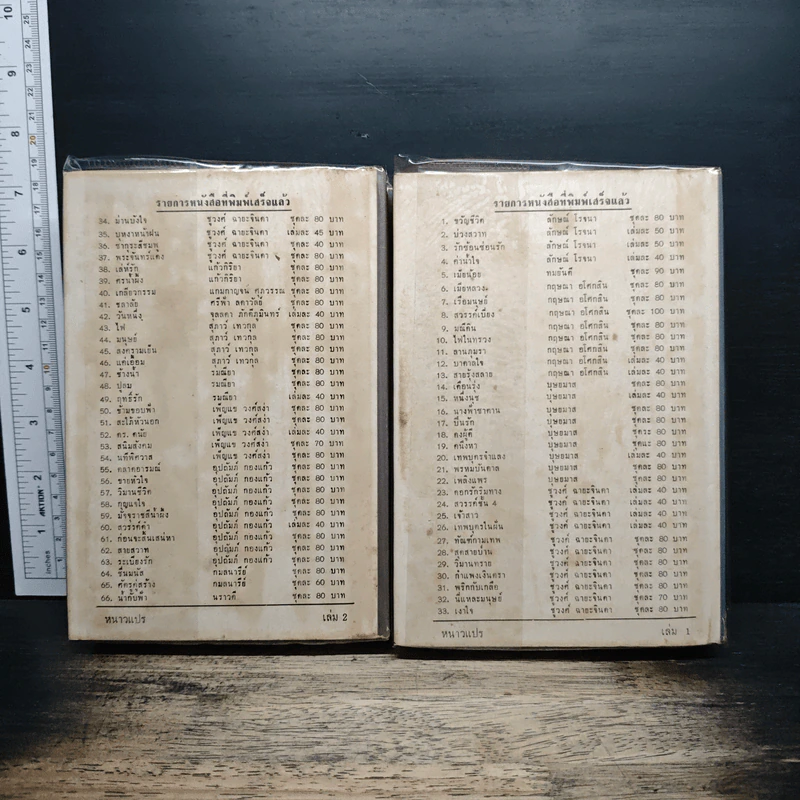 รายการหนังสือที่พิมพ์เสร็จแล้ว
34. ม่านบังใจ ชูวงศ์ ฉายะจินดา ชุดละ 80 บาท
35. บุหงาหน้าฝน ชูวงศ์ ฉายะจินดา เล่มละ 45 บาท
36. ชูวงศ์ ฉายะจินดา เล่มละ 40 บาท
37. พระจันทร์แดง ชูวงศ์ ฉายะจินดา ชุดละ 80 บาท
38. เล่ห์รัก แก้วกิริยา ชุดละ 80 บาท
39. ตราน้ำผึ้ง แก้วกิริยา ชุดละ 80 บาท
40. เกลียวกรรม แถมกาญจน์ ศุภวรรณ ชุดละ 80 บาท
41. ชลาลัย ศรีฟ้า ลดาวัลย์ ชุดละ 80 บาท
42. วันหนึ่ง จุลลดา ภักดีภูมินทร์ เล่มละ 40 บาท
43. ไฟ สุภาว์ เทวกุล ชุดละ 80 บาท
44. มนุษย์ สุภาว์ เทวกุล ชุดละ 80 บาท
45. สงครามเย็น สุภาว์ เทวกุล ชุดละ 80 บาท
46. แค่เอื้อม สุภาว์ เทวกุล เล่มละ 40 บาท
47. ช้างน้ำ รมณียา ชุดละ 80 บาท
48. ปูลม รมณียา ชุดละ 80 บาท
49. ฤทธิ์รัก รมณียา เล่มละ 40 บาท
50. ข้ามขอบฟ้า เพ็ญแข วงศ์สง่า ชุดละ 80 บาท
51. สะใภ้หัวนอก เพ็ญแข วงศ์สง่า ชุดละ 80 บาท
52. ดร. ดนัย เพ็ญแข วงศ์สง่า เล่มละ 40 บาท
53. สนิมสังคม เพ็ญแข วงศ์สง่า ชุดละ 70 บาท
54. นทีพิศวาส เพ็ญแข วงศ์สง่า ชุดละ 80 บาท
55. ตลาดอารมณ์ อุปถัมภ์ กองแก้ว ชุดละ 80 บาท
56. ขายหัวใจ อุปถัมภ์ กองแก้ว ชุดละ 80 บาท
57. วิมานชีวิต อุปถัมภ์ กองแก้ว ชุดละ 80 บาท
58. กุญแจใจ อุปถัมภ์ กองแก้ว ชุดละ 80 บาท
59. อุปถัมภ์ กองแก้ว ชุดละ 80 บาท
60. สวรรค์ค้ำ อุปถัมภ์ กองแก้ว เล่มละ 40 บาท
61. ก่อนจะสิ้นเสน่หา อุปถัมภ์ กองแก้ว ชุดละ 80 บาท
62. สายสวาท อุปถัมภ์ กองแก้ว ชุดละ 80 บาท
63. ระเบียงรัก อุปถัมภ์ กองแก้ว ชุดละ 80 บาท
64. ขื่นมนัส กมลนารีย์ ชุดละ 80 บาท
65. ศัตรูคู่สร้าง กมลนารีย์ ชุดละ 60 บาท
66. น้ำกับฟ้า นราวดี ชุดละ 80 บาท
หนาวแปร เล่ม 2
รายการหนังสือที่พิมพ์เสร็จแล้ว
1. ขวัญชีวิต ลักษณ์ โรจนา ชุดละ 80 บาท
2. บ่วงสวาท ลักษณ์ โรจนา เล่มละ 50 บาท
3. รักซ้อนซ่อนรัก ลักษณ์ โรจนา เล่มละ 50 บาท
4. ค่าน้ำใจ ลักษณ์ โรจนา เล่มละ 40 บาท
5. เมียน้อย ทมยันตี ชุดละ 90 บาท
6. เมียหลวง กฤษณา อโศกสิน ชุดละ 80 บาท
7. เรือมนุษย์ กฤษณา อโศกสิน ชุดละ 80 บาท
8. สวรรค์เบี่ยง กฤษณา อโศกสิน ชุดละ 100 บาท
9. มณีดิน กฤษณา อโศกสิน ชุดละ 80 บาท
10. ไฟในทรวง กฤษณา อโศกสิน ชุดละ 80 บาท
11. ชานภุมรา กฤษณา อโศกสิน ชุดละ 80 บาท
12. บาดาลใจ กฤษณา อโศกสิน เล่มละ 40 บาท
13. สายรุ้งสลาย กฤษณา อโศกสิน เล่มละ 40 บาท
14. เดือนรุ่ง บุษยมาส ชุดละ 80 บาท
15. หนึ่งนุช บุษยมาส เล่มละ 40 บาท
16. นางฟ้าซาตาน บุษยมาส ชุดละ 80 บาท
17. ปีนรัก บุษยมาส ชุดละ 80 บาท
18. ดงผู้ดี บุษยมาส ชุดละ 80 บาท
19. คนึงหา บุษยมาส ชุดละ 80 บาท
20. เทพบุตรจำแลง บุษยมาส เล่มละ 40 บาท
21. พรหมบันดาล บุษยมาส ชุดละ 80 บาท
22. เพลิงแพร บุษยมาส ชุดละ 80 บาท
23. ดอกรักริมทาง ชูวงศ์ ฉายะจินดา เล่มละ 40 บาท
24. สวรรค์ชั้น 4 ชูวงศ์ ฉายะจินดา เล่มละ 40 บาท
25. เจ้าสาว ชูวงศ์ ฉายะจินดา เล่มละ 40 บาท
26. เทพบุตรในฝัน ชูวงศ์ ฉายะจินดา เล่มละ 40 บาท
27. ทัณฑ์กามเทพ ชูวงศ์ ฉายะจินดา ชุดละ 80 บาท
28. สุดสายป่าน ชูวงศ์ ฉายะจินดา ชุดละ 80 บาท
29. วิมานทราย ชูวงศ์ ฉายะจินดา ชุดละ 80 บาท
30. กำแพงเงินตรา ชูวงศ์ ฉายะจินดา ชุดละ 80 บาท
31. พริกกับเกลือ ชูวงศ์ ฉายะจินดา ชุดละ 80 บาท
32. นี่แหละมนุษย์ ชูวงศ์ ฉายะจินดา ชุดละ 70 บาท
33. เงาใจ ชูวงศ์ ฉายะจินดา ชุดละ 80 บาท
หนาวแปร เล่ม 1